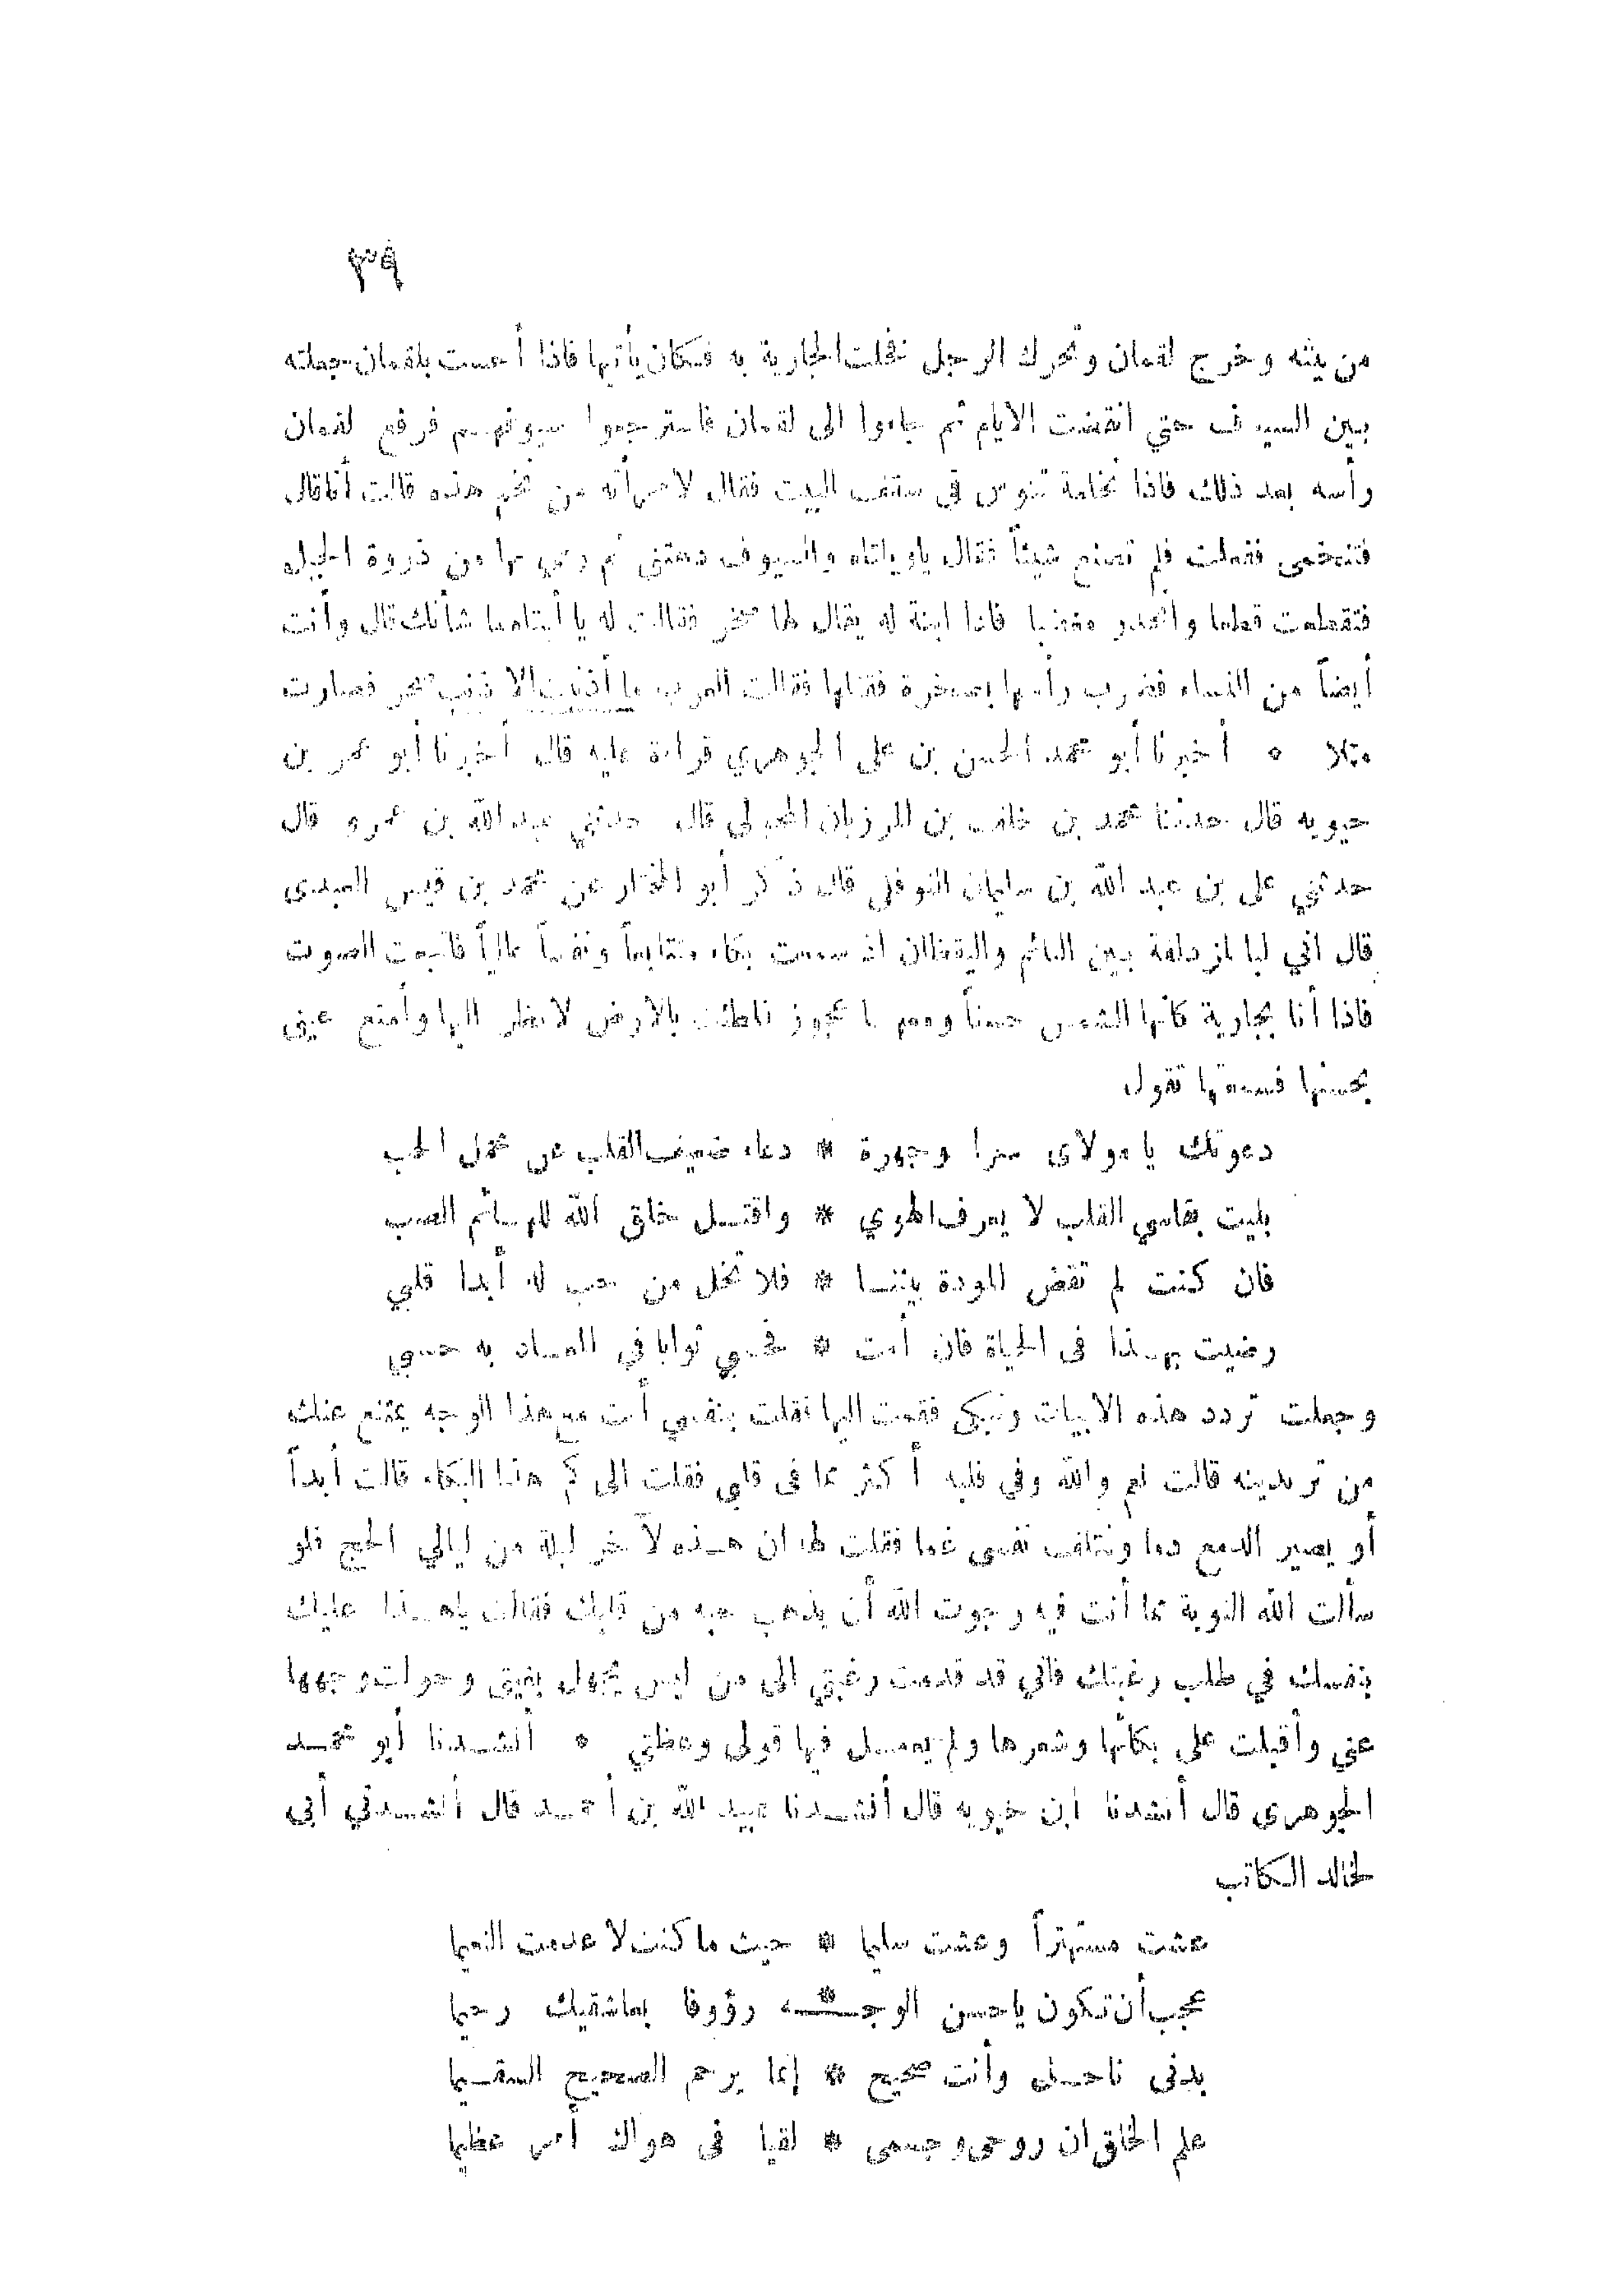 ٣٩
من بيته وخرج لقمان وتحرك الرجل فحلت الجارية به فكان يأتيها فاذا أحست بلقمان جعلته
بين السيوف حتي انقضت الايام ثم جاءوا الى لقمان فاسترجعوا سيوفهم فرفع لقمان
رأسه بعد ذلك فاذا نخامة تنوس في سقف البيت فقال لامرأته من نخم هذه قالت أنا قال
فتنخمى ففعلت فلم تصنع شيئاً فقال ياويلتاه والسيوف دهتنى ثم رمى بها من ذروة الجبل
فتقطعت قطعا وانحدر مغضبا فاذا ابنة له يقال لها صخر فقالت له يا أبتاه ما شأنك قال وأنت
أيضاً من النساء فضرب رأسها بصخرة فقتلها فقالت العرب ما أذنبت الا ذنب صخر فصارت
مثلا ٥ أخبرنا أبو محمد الحسن بن على الجوهري قراءة عليه قال أخبرنا أبو عمر بن
حيويه قال حدثنا محمد بن خلف بن المرزبان المحولى قال حدثني عبد الله بن عمرو قال
حدثني على بن عبد الله بن سليمان النوفلى قال ذكر أبو المختار عن محمد بن قيس العبدى
قال اني لبالمزدلفة بين النائم واليقظان اذ سمعت بكاء متتابعاً ونفساً عالياً فاتبعت الصوت
فاذا أنا بجارية كأنها الشمس حسناً ومعها عجوز فلطئت بالارض لانظر اليها وأمتع عيني
بحسنها فسمعتها تقول
دعوتك يا مولاى سرا وجهرة * دعاء ضعيف القلب عن محمل الحب
بليت بقاسي القلب لا يعرف الهوي * واقتــل خلق الله للهــائم الصب
فان كنت لم تقض المودة بيننــا * فلا تخل من حب له أبدا قلبي
رضيت بهــذا فى الحياة فان أمت * فحسبي ثوابا في المعــاد به حسبي
وجعلت تردد هذه الابيات وتبكى فقمت اليها فقلت بنفسي أنت مع هذا الوجه يمتنع عنك
من تريدينه قالت نعم والله وفي قلبه أكثر مما فى قلبي فقلت الى كم هذا البكاء قالت أبداً
أو يصير الدمع دما وتتلف نفسى غما فقلت لها ان هــذه لآخر ليلة من ليالي الحج فلو
سألت الله التوبة مما أنت فيه رجوت الله أن يذهب حبه من قلبك فقالت ياهــذا عليك
بنفسك في طلب رغبتك فاني قد قدمت رغبتي الى من ليس يجهل بغيتى وحولت وجهها
عني وأقبلت على بكائها وشعرها ولم يعمــل فيها قولى وعظتي ٥ أنشــدنا أبو محمــد
الجوهرى قال أنشدنا ابن حيويه قال أنشــدنا عبيد الله بن أحمــد قال أنشــدني أبى
لخالد الكاتب
عشت مستهتراً وعشت سليما * حيث ما كنت لا عدمت النعيما
عجب أن تكون يا حسن الوجــ * ـه رؤوفا بعاشقيك رحيما
بدنى ناحــل وأنت صحيح * إنما يرحم الصحيح السقــيما
علم الخلق ان روحى وجسمى * لقيا فى هواك أمس عظيما